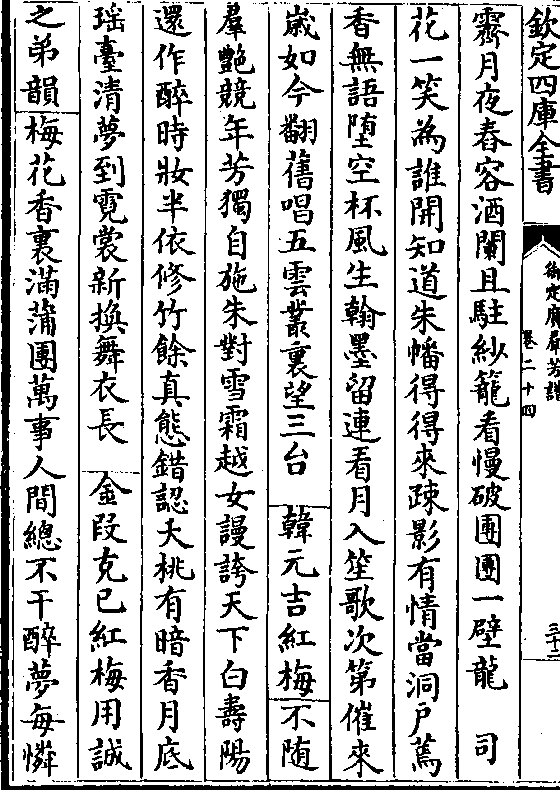 欽定四庫全書
御定廣羣芳譜
卷二十四
三十二
霽月夜春容酒闌且駐紗籠看慢破團團一璧龍　司
花一笑為誰開知道朱幡得得來疎影有情當洞戶蔫
香無語墮空杯風生翰墨留連看月入笙歌次第催來
歲如今翻舊唱五雲叢裏望三台　韓元吉紅梅不随
羣艷競年芳獨自施朱對雪霜越女謾誇天下白壽陽
還作醉時妝半依修竹餘真態錯認夭桃有暗香月底
瑶臺清夢到霓裳新換舞衣長　金段克己紅梅用誠
之弟韻梅花香裏滿蒲團萬事人間總不干醉夢每憐